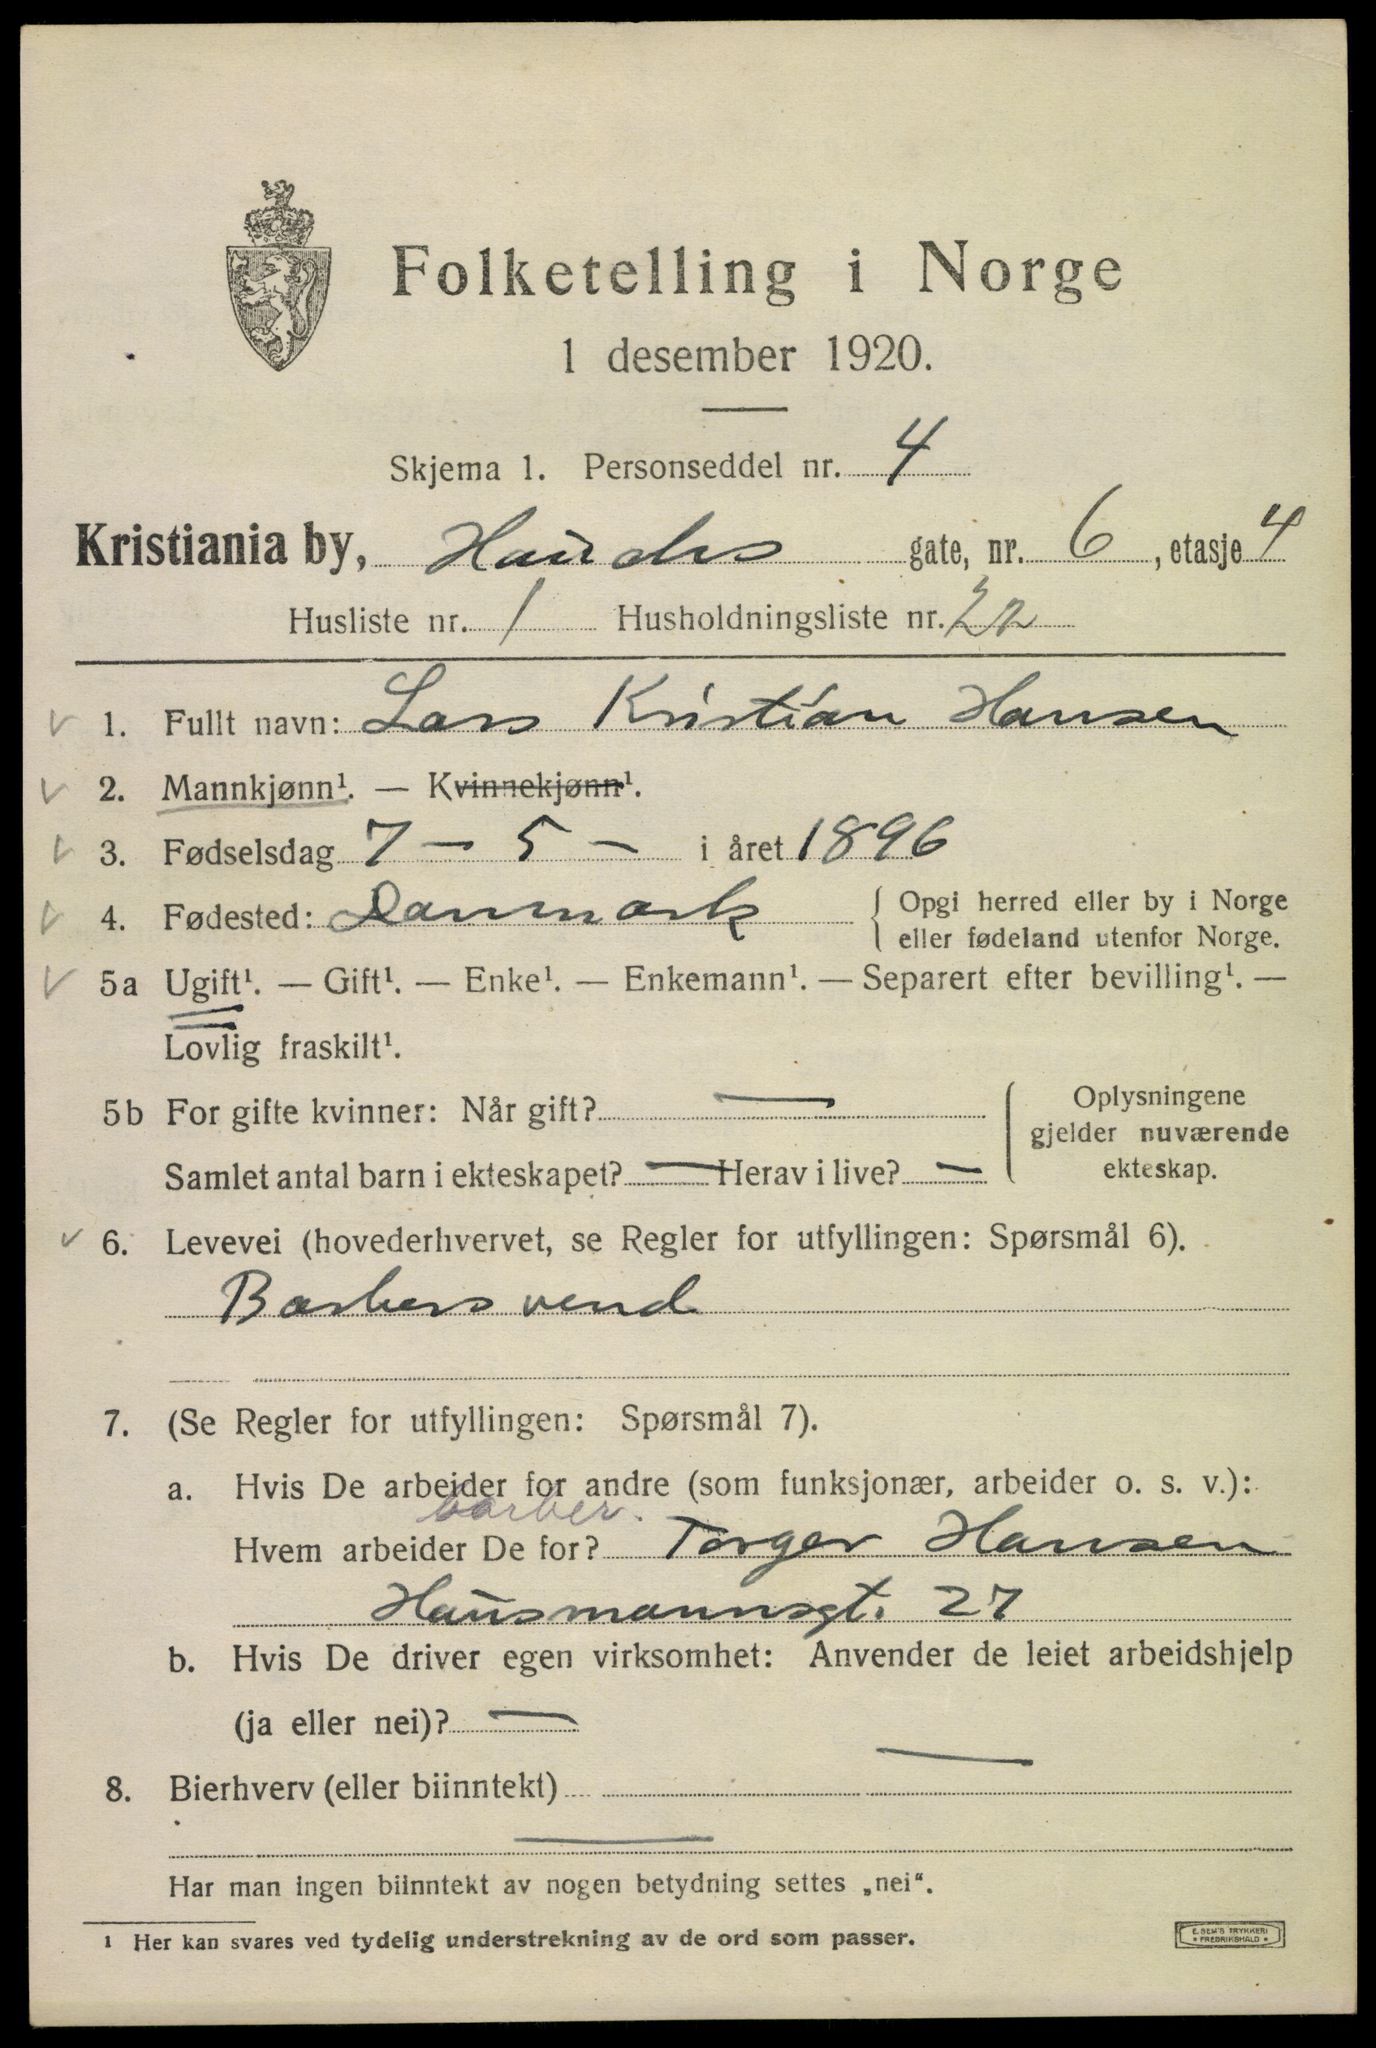 Folketelling i Norge
1 desember 1920.
Skjema 1. Personseddel nr. 4
Kristiania by, Haudes gate, nr. 6, etasje 4
Husliste nr. 1 Husholdningsliste nr. 22
1. Fullt navn: Lars Kristian Hansen
2. Mannkjønn¹. — Kvinnekjønn¹.
3. Fødselsdag 7 – 5 – i året 1896
4. Fødested: Danmark { Opgi herred eller by i Norge
eller fødeland utenfor Norge.
5a Ugift¹. — Gift¹. — Enke¹. — Enkemann¹. — Separert efter bevilling¹. —
Lovlig fraskilt¹.
5b For gifte kvinner: Når gift? — { Oplysningene
gjelder nuværende
Samlet antal barn i ekteskapet? — Herav i live? — ekteskap.
6. Levevei (hovederhvervet, se Regler for utfyllingen: Spørsmål 6).
Barbersvend
7. (Se Regler for utfyllingen: Spørsmål 7).
a. Hvis De arbeider for andre (som funksjonær, arbeider o. s. v.):
barber.
Hvem arbeider De for? Torger Hansen
Hausmannsgt. 27
b. Hvis De driver egen virksomhet: Anvender de leiet arbeidshjelp
(ja eller nei)? —
8. Bierhverv (eller biinntekt) —
—
Har man ingen biinntekt av nogen betydning settes „nei“.
¹ Her kan svares ved tydelig understrekning av de ord som passer.
E. SEM'S TRYKKERI
* FREDRIKSHALD *